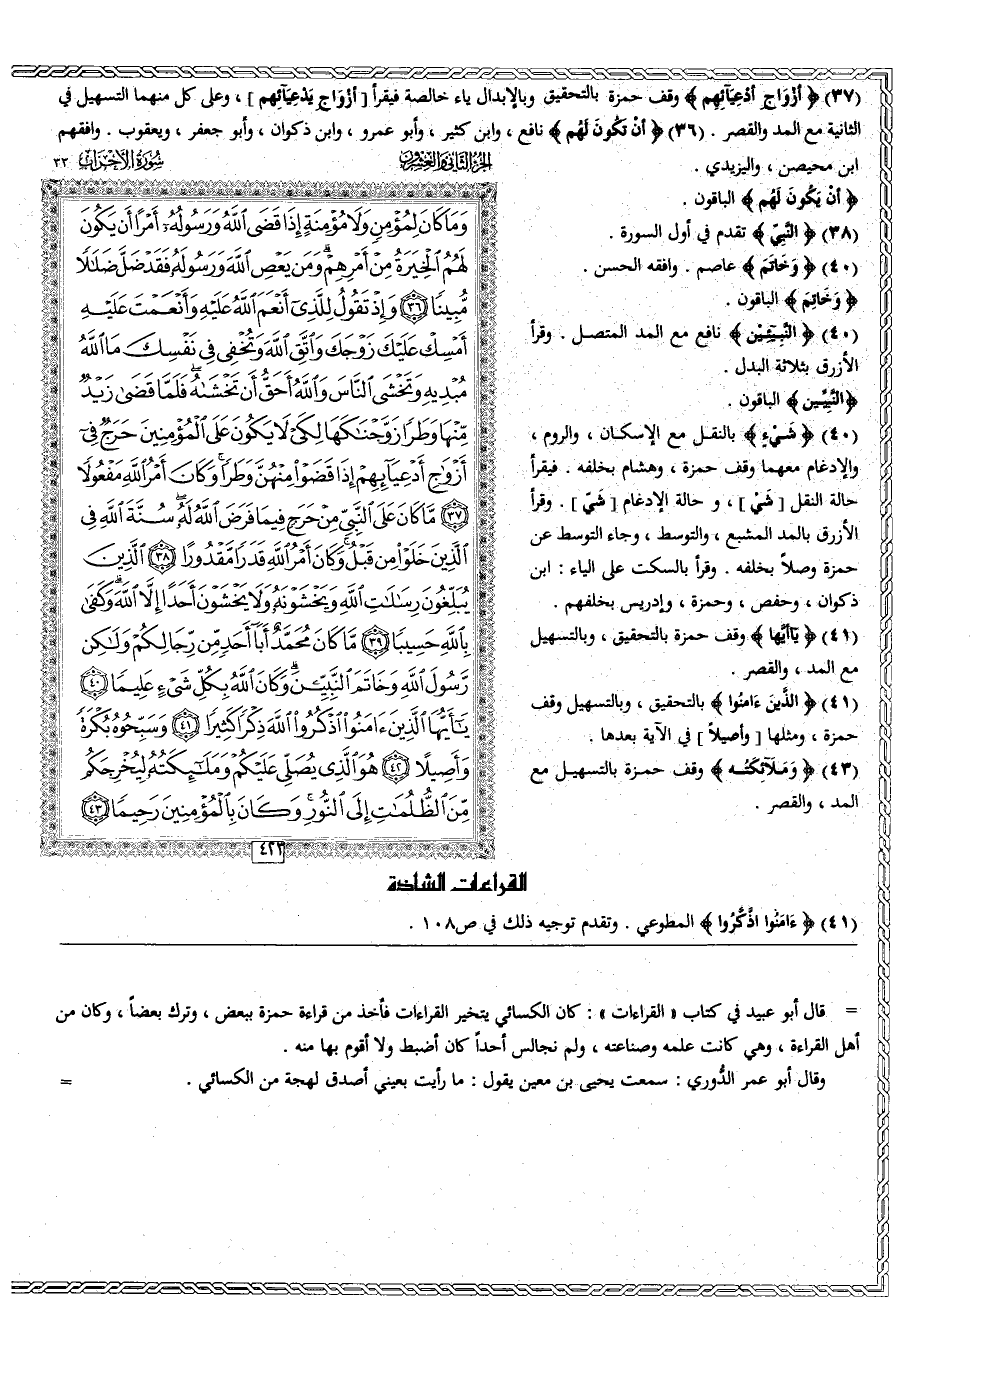 (٣٧) ﴿ أزْوَاج أدْعِيَآئِهِم ﴾ وقف حمزة بالتحقيق وبالإبدال ياء خالصة فيقرأ [ أزْوَاج يَدْعِيَآئِهِم ] ، وعلى كل منهما التسهيل في
الثانية مع المد والقصر . (٣٦) ﴿ أنْ تَكُونَ لَهُم ﴾ نافع ، وابن كثير ، وأبو عمرو ، وابن ذكوان ، وأبو جعفر ، ويعقوب . وافقهم
ابن محيصن ، واليزيدي .
﴿ أنْ يَكُونَ لَهُم ﴾ الباقون .
(٣٨) ﴿ النَّبِيِّ ﴾ تقدم في أول السورة .
(٤٠) ﴿ وَخَاتَمَ ﴾ عاصم . وافقه الحسن .
﴿ وَخَاتِمَ ﴾ الباقون .
(٤٠) ﴿ النَّبِيۤـِٔيْن ﴾ نافع مع المد المتصل . وقرأ
الأزرق بثلاثة البدل .
﴿النَّبِيِّـين ﴾ الباقون .
(٤٠) ﴿ شَيْءٍ ﴾ بالنقل مع الإسكان ، والروم ،
والإدغام معهما وقف حمزة ، وهشام بخلفه . فيقرأ
حالة النقل [ شَيْ ] ، و حالة الإدغام [ شَيّ ] . وقرأ
الأزرق بالمد المشبع ، والتوسط ، وجاء التوسط عن
حمزة وصلاً بخلفه . وقرأ بالسكت على الياء : ابن
ذكوان ، وحفص ، وحمزة ، وإدريس بخلفهم .
(٤١) ﴿ يَآأيُّها ﴾ وقف حمزة بالتحقيق ، وبالتسهيل
مع المد ، والقصر .
(٤١) ﴿ الذَّينَ ءَامنُوا ﴾ بالتحقيق ، وبالتسهيل وقف
حمزة ، ومثلها [ وأصيلاً ] في الآية بعدها .
(٤٣) ﴿ وَمَلآئِكَتُـه ﴾ وقف حمـزة بالتسهيـل مع
المد ، والقصر .
الجزء الثاني والعشرون سورة الأحزاب ٣٣
وَمَا كَانَ لِمُؤْمِنٍ وَلَا مُؤْمِنَةٍ إِذَا قَضَى ٱللَّهُ وَرَسُولُهُۥٓ أَمْرًا أَن يَكُونَ
لَهُمُ ٱلْخِيَرَةُ مِنْ أَمْرِهِمْ ۗ وَمَن يَعْصِ ٱللَّهَ وَرَسُولَهُۥ فَقَدْ ضَلَّ ضَلَٰلًا
مُّبِينًا ٣٦ وَإِذْ تَقُولُ لِلَّذِىٓ أَنْعَمَ ٱللَّهُ عَلَيْهِ وَأَنْعَمْتَ عَلَيْهِ
أَمْسِكْ عَلَيْكَ زَوْجَكَ وَٱتَّقِ ٱللَّهَ وَتُخْفِى فِى نَفْسِكَ مَا ٱللَّهُ
مُبْدِيهِ وَتَخْشَى ٱلنَّاسَ وَٱللَّهُ أَحَقُّ أَن تَخْشَىٰهُ ۖ فَلَمَّا قَضَىٰ زَيْدٌ
مِّنْهَا وَطَرًا زَوَّجْنَٰكَهَا لِكَىْ لَا يَكُونَ عَلَى ٱلْمُؤْمِنِينَ حَرَجٌ فِىٓ
أَزْوَٰجِ أَدْعِيَآئِهِمْ إِذَا قَضَوْا۟ مِنْهُنَّ وَطَرًا ۚ وَكَانَ أَمْرُ ٱللَّهِ مَفْعُولًا
٣٧ مَّا كَانَ عَلَى ٱلنَّبِىِّ مِنْ حَرَجٍ فِيمَا فَرَضَ ٱللَّهُ لَهُۥ ۖ سُنَّةَ ٱللَّهِ فِى
ٱلَّذِينَ خَلَوْا۟ مِن قَبْلُ ۚ وَكَانَ أَمْرُ ٱللَّهِ قَدَرًا مَّقْدُورًا ٣٨ ٱلَّذِينَ
يُبَلِّغُونَ رِسَٰلَٰتِ ٱللَّهِ وَيَخْشَوْنَهُۥ وَلَا يَخْشَوْنَ أَحَدًا إِلَّا ٱللَّهَ ۗ وَكَفَىٰ
بِٱللَّهِ حَسِيبًا ٣٩ مَّا كَانَ مُحَمَّدٌ أَبَآ أَحَدٍ مِّن رِّجَالِكُمْ وَلَٰكِن
رَّسُولَ ٱللَّهِ وَخَاتَمَ ٱلنَّبِيِّۦنَ ۗ وَكَانَ ٱللَّهُ بِكُلِّ شَىْءٍ عَلِيمًا ٤٠
يَٰٓأَيُّهَا ٱلَّذِينَ ءَامَنُوا۟ ٱذْكُرُوا۟ ٱللَّهَ ذِكْرًا كَثِيرًا ٤١ وَسَبِّحُوهُ بُكْرَةً
وَأَصِيلًا ٤٢ هُوَ ٱلَّذِى يُصَلِّى عَلَيْكُمْ وَمَلَٰٓئِكَتُهُۥ لِيُخْرِجَكُم
مِّنَ ٱلظُّلُمَٰتِ إِلَى ٱلنُّورِ ۚ وَكَانَ بِٱلْمُؤْمِنِينَ رَحِيمًا ٤٣
٤٢٣
القراءات الشاذة
(٤١) ﴿ ءَامَنُوا اذَّكَّرُوا ﴾ المطوعي . وتقدم توجيه ذلك في ص١٠٨ .
= قال أبو عبيد في كتاب « القراءات » : كان الكسائي يتخير القراءات فأخذ من قراءة حمزة ببعض ، وترك بعضاً ، وكان من
أهل القراءة ، وهي كانت علمه وصناعته ، ولم نجالس أحداً كان أضبط ولا أقوم بها منه .
وقال أبو عمر الدُّوري : سمعت يحيى بن معين يقول : ما رأيت بعيني أصدق لهجة من الكسائي . =